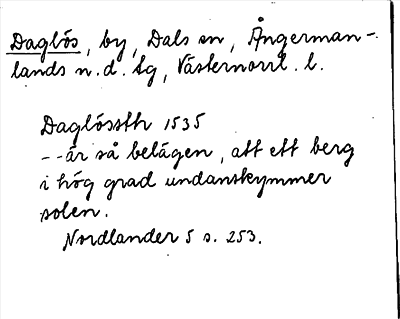 Daglös, by, Dals sn, Ångerman-
lands n. d. tg, Västernorrl. l.
Daglössth 1535
-- är så belägen, att ett berg
i hög grad undanskymmer
solen.
Nordlander 5 s. 253.